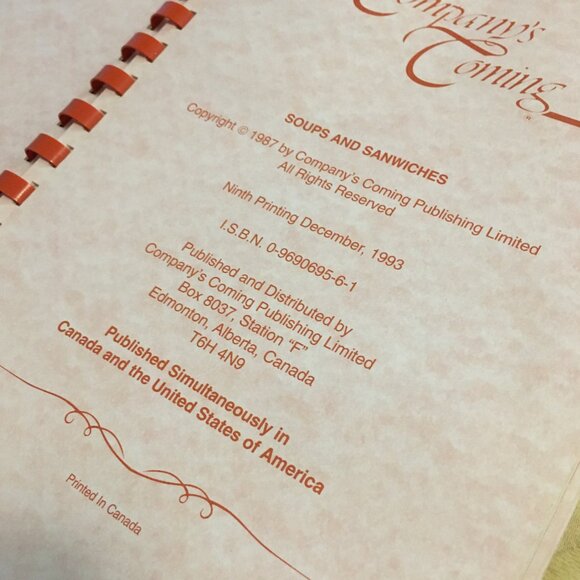 Company's
Coming
®
SOUPS AND SANWICHES
Copyright © 1987 by Company's Coming Publishing Limited
All Rights Reserved
Ninth Printing December, 1993
I.S.B.N. 0-9690695-6-1
Published and Distributed by
Company's Coming Publishing Limited
Box 8037, Station "F"
Edmonton, Alberta, Canada
T6H 4N9
Published Simultaneously in
Canada and the United States of America
Printed In Canada